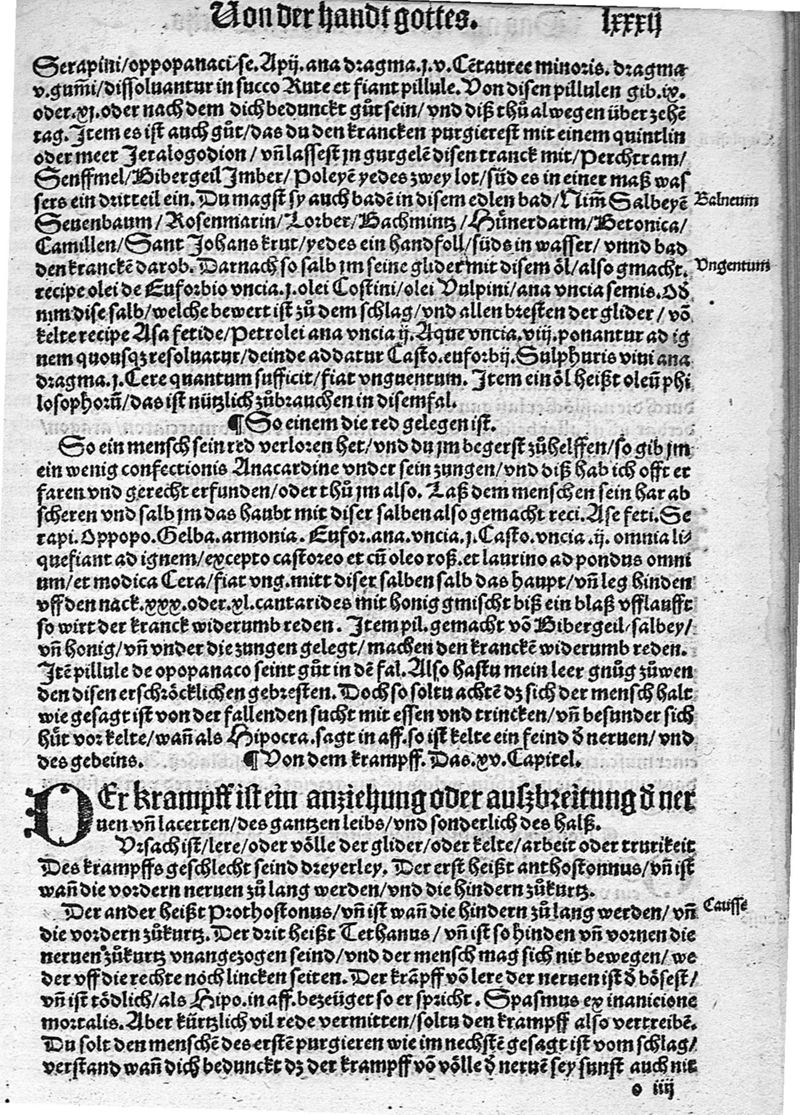 Von der handt gottes. lxxxij
Serapini/oppopanaci/se. Apij. ana dragma.j.v. Cētauree minoris. dragma
v.gum̄i/dissoluantur in succo Rute et fiant pillule. Von disen pillulen gib.ix.
oder.xj.oder nach dem dich bedunckt gůt sein/vnd diß thů alwegen über zehē
tag. Item es ist auch gůt/das du den krancken purgierest mit einem quintlin
oder meer Jeralogodion/vn̄ lassest jn gurgelē disen tranck mit/Perchtram/
Senffmel/Bibergeil Imber/Poleyē yedes zwey lot/süd es in einer maß was
sers ein dritteil ein. Du magst sy auch badē in disem edlen bad/Nim̄ Salbeyē
Balneum
Seuenbaum/Rosenmarin/Lorber/Bachmintz/Hůnerdarm/Betonica/
Camillen/Sant Johans krut/yedes ein handfoll/süds in wasser/vnnd bad
den kranckē darob. Darnach so salb jm seine glider mit disem öl/also gmacht.
Vngentum
recipe olei de Euforbio vncia.j.olei Costini/olei Vulpini/ana vncia semis. Od̄
nim dise salb/welche bewert ist zů dem schlag/vnd allen bresten der glider/vō
kelte recipe Asa fetide/Petrolei ana vncia ij. Aque vncia.viij.ponantur ad ig
nem quousqȝ resoluatur/deinde addatur Casto.euforbij. Sulphuris viui ana
dragma.j.Cere quantum sufficit/fiat vnguentum. Item ein öl heißt oleū phi
losophorū/das ist nützlich zůbrauchen in disem fal.
¶So einem die red gelegen ist.
So ein mensch sein red verloren het/vnd du jm begerst zůhelffen/so gib jm
ein wenig confectionis Anacardine vnder sein zungen/vnd diß hab ich offt er
faren vnd gerecht erfunden/oder thů jm also. Laß dem menschen sein har ab
scheren vnd salb jm das haubt mit diser salben also gemacht reci. Ase feti. Se
rapi. Oppopo. Gelba. armonia. Eufor. ana. vncia.j. Casto. vncia.ij. omnia li⸗
quefiant ad ignem/excepto castoreo et cū oleo roß. et laurino ad pondus omni
um/et modica Cera/fiat vng. mitt diser salben salb das haupt/vn̄ leg hinden
vff den nack.xxx.oder.xl.cantarides mit honig gmischt biß ein blaß vfflaufft
so wirt der kranck widerumb reden. Item pil. gemacht vō Bibergeil/salbey/
vn̄ honig/vn̄ vnder die zungen gelegt/machen den kranckē widerumb reden.
Itē pillule de opopanaco seint gůt in dē fal. Also hastu mein leer gnůg zůwen
den disen erschröcklichen gebresten. Doch so soltu achtē dȝ sich der mensch halt
wie gesagt ist von der fallenden sucht mit essen vnd trincken/vn̄ besunder sich
hüt vor kelte/wan̄ als Hipocra. sagt in aff. so ist kelte ein feind d̄ neruen/vnd
des gebeins. ¶Von dem krampff. Das.xv.Capitel.
DEr krampff ist ein anziehung oder auszbreitung d̄ ner
uen vn̄ lacerten/des gantzen leibs/vnd sonderlich des halß.
Vrsach ist/lere/oder völle der glider/oder kelte/arbeit oder trurikeit
Des krampffs geschlecht seind dreyerley. Der erst heißt anthostonnus/vn̄ ist
wan̄ die vordern neruen zů lang werden/vnd die hindern zůkurtz.
Der ander heißt Prothostonus/vn̄ ist wan̄ die hindern zů lang werden/vn̄
Causse
die vordern zůkurtz. Der drit heißt Tethanus/vn̄ ist so hinden vn̄ vornen die
neruen zůkurtz vnangezogen seind/vnd der mensch mag sich nit bewegen/we
der vff die rechte noch lincken seiten. Der krāpff vō lere der neruen ist d̄ bösest/
vn̄ ist tödlich/als Hipo. in aff. bezeüget so er spricht. Spasmus ex inanicione
mortalis. Aber kürtzlich vil rede vermitten/soltu den krampff also vertreibē.
Du solt den menschē des erstē purgieren wie im nechstē gesagt ist vom schlag/
verstand wan̄ dich bedunckt dȝ der krampff vō völle d̄ neruē sey sunst auch nit
o iiij